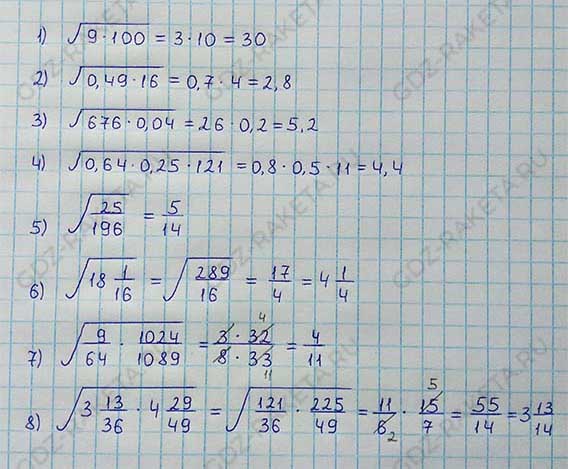 1) √(9·100) = 3·10 = 30
2) √(0,49·16) = 0,7·4 = 2,8
3) √(676·0,04) = 26·0,2 = 5,2
4) √(0,64·0,25·121) = 0,8·0,5·11 = 4,4
5) √(25/196) = 5/14
6) √(18 1/16) = √(289/16) = 17/4 = 4 1/4
7) √(9/64 · 1024/1089) = (3·32 4)/(8·33 11) = 4/11
8) √(3 13/36 · 4 29/49) = √(121/36 · 225/49) = 11/6 2 · 15 5/7 = 55/14 = 3 13/14
GDZ-RAKETA.RU